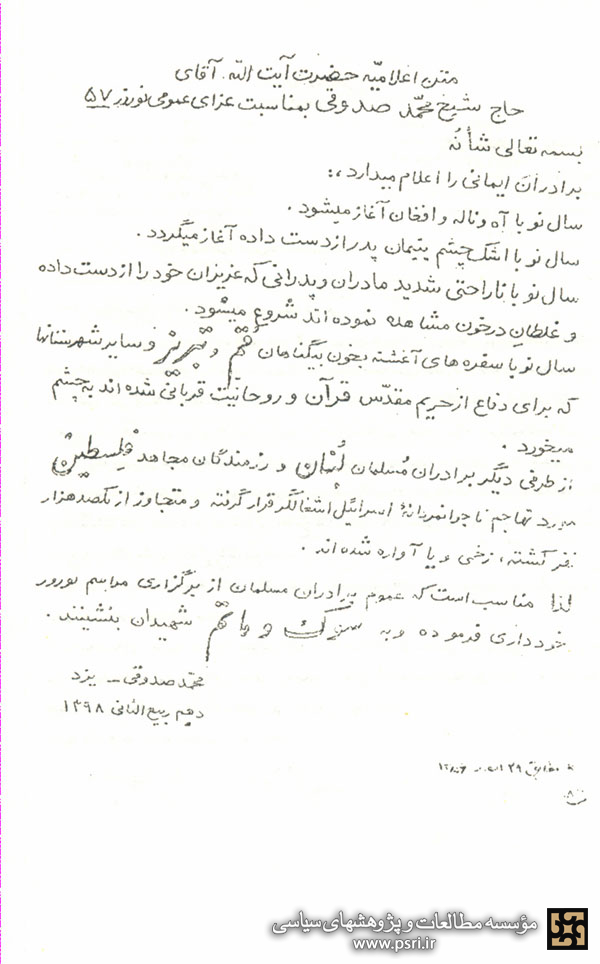 متن اعلامیّه حضرت آیت اللّه. آقای
حاج شیخ محمّد صدوقی بمناسبت عزای عمومی نوروز ۵۷
بسمه تعالی شأنُه
برادران ایمانی را اعلام میدارد ،:
سال نو با آه و ناله و افغان آغاز میشود .
سال نو با اشک چشم یتیمان پدر از دست داده آغاز میگردد .
سال نو با ناراحتی شدید مادران و پدرانی که عزیزان خود را از دست داده
و غلطان در خون مشاهده نموده اند شروع میشود .
سال نو با سفره های آغشته بخون بیگناهان قم و تبریز و سایر شهرستانها
که برای دفاع از حریم مقدّس قرآن و روحانیت قربانی شده اند به چشم
میخورد .
از طرفی دیگر برادران مُسلمان لبنان و رزمندگان مجاهد فلسطین
مورد تهاجم ناجوانمردانهٔ اسرائیل اشغالگر قرار گرفته و متجاوز از یکصد هزار
نفر کشته ، زخمی و یا آواره شده اند .
لذا مناسب است که عموم برادران مسلمان از برگزاری مراسم نوروز
خودداری فرموده و به سوگ و ماتم شهیدان بنشینند .
محمّد صدوقی - یزد
دهم ربیع الثانی ۱۳۹۸
مطابق ۲۹
مؤسسه مطالعات و پژوهشهای سیاسی
www.psri.ir